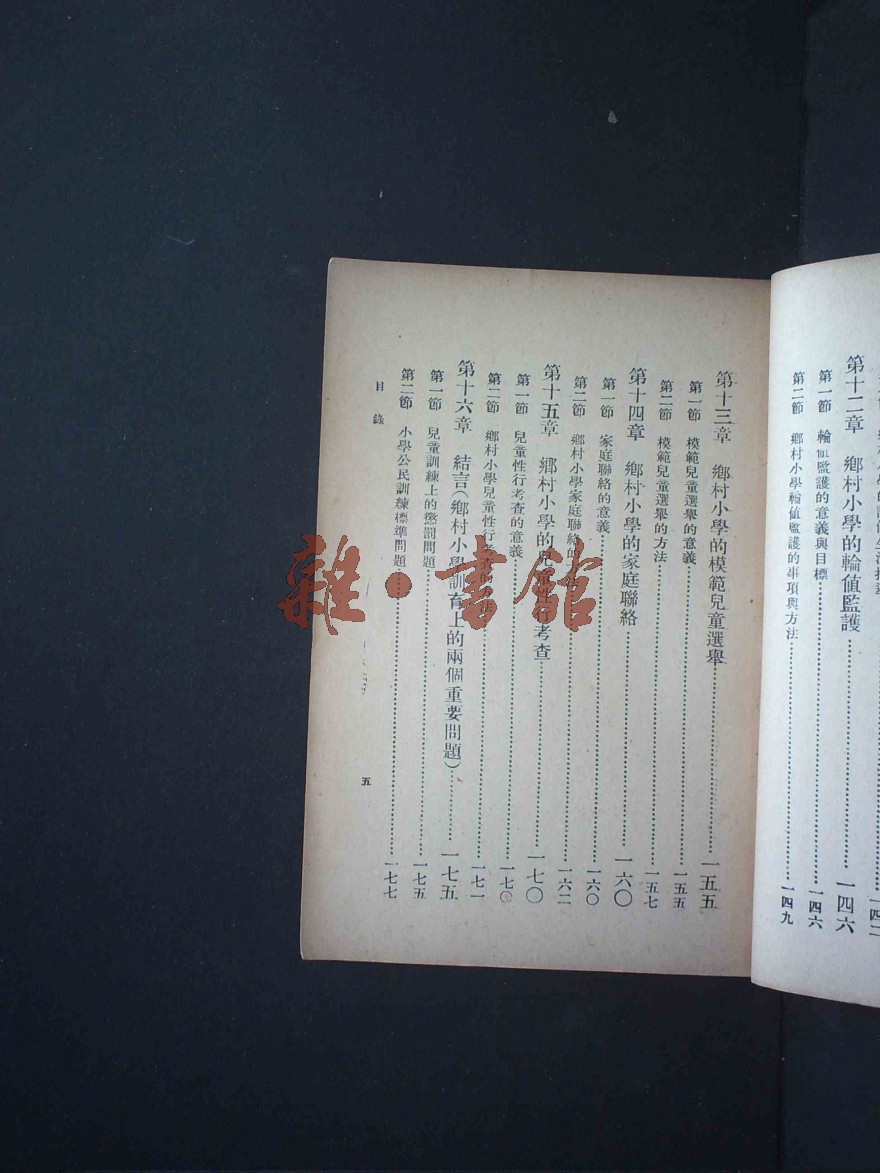 第十二章　鄉村小學的輪值監護……一四六
第一節　輪值監護的意義與目標……一四六
第二節　鄉村小學輪值監護的事項與方法……一四九
第十三章　鄉村小學的模範兒童選舉……一五五
第一節　模範兒童選舉的意義……一五五
第二節　模範兒童選舉的方法……一五七
第十四章　鄉村小學的家庭聯絡……一六〇
第一節　家庭聯絡的意義……一六〇
第二節　鄉村小學家庭聯絡的……一六二
第十五章　鄉村小學的兒童性行考查……一七〇
第一節　兒童性行考查的意義……一七〇
第二節　鄉村小學兒童性行考查的……一七一
第十六章　結言（鄉村小學訓育上的兩個重要問題）……一七五
第一節　兒童訓練上的懲罰問題……一七五
第二節　小學公民訓練標準問題……一七七
目錄
五
雜·書館